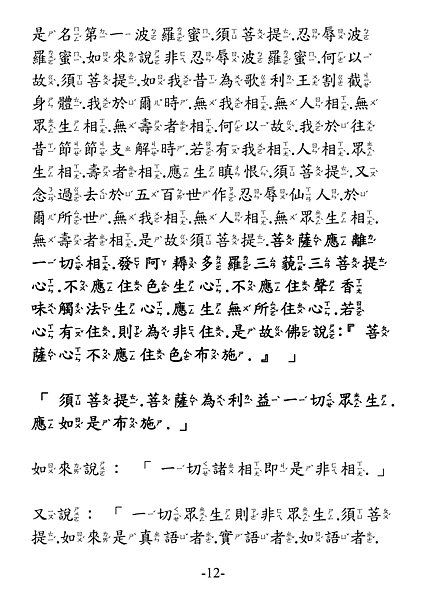 是名第一波羅蜜.須菩提.忍辱波
羅蜜.如來說非忍辱波羅蜜.何以
故.須菩提.如我昔為歌利王割截
身體.我於爾時.無我相.無人相.無
眾生相.無壽者相.何以故.我於往
昔節節支解時.若有我相.人相.眾
生相.壽者相.應生瞋恨.須菩提.又
念過去於五百世作忍辱仙人.於
爾所世.無我相.無人相.無眾生相.
無壽者相.是故須菩提.菩薩應離
一切相.發阿耨多羅三藐三菩提
心.不應住色生心.不應住聲香
味觸法生心.應生無所住心.若
心有住.則為非住.是故佛說:『菩
薩心不應住色布施.』」
「須菩提.菩薩為利益一切眾生.
應如是布施.」
如來說:「一切諸相即是非相.」
又說:「一切眾生則非眾生.須菩
提.如來是真語者.實語者.如語者.
-12-